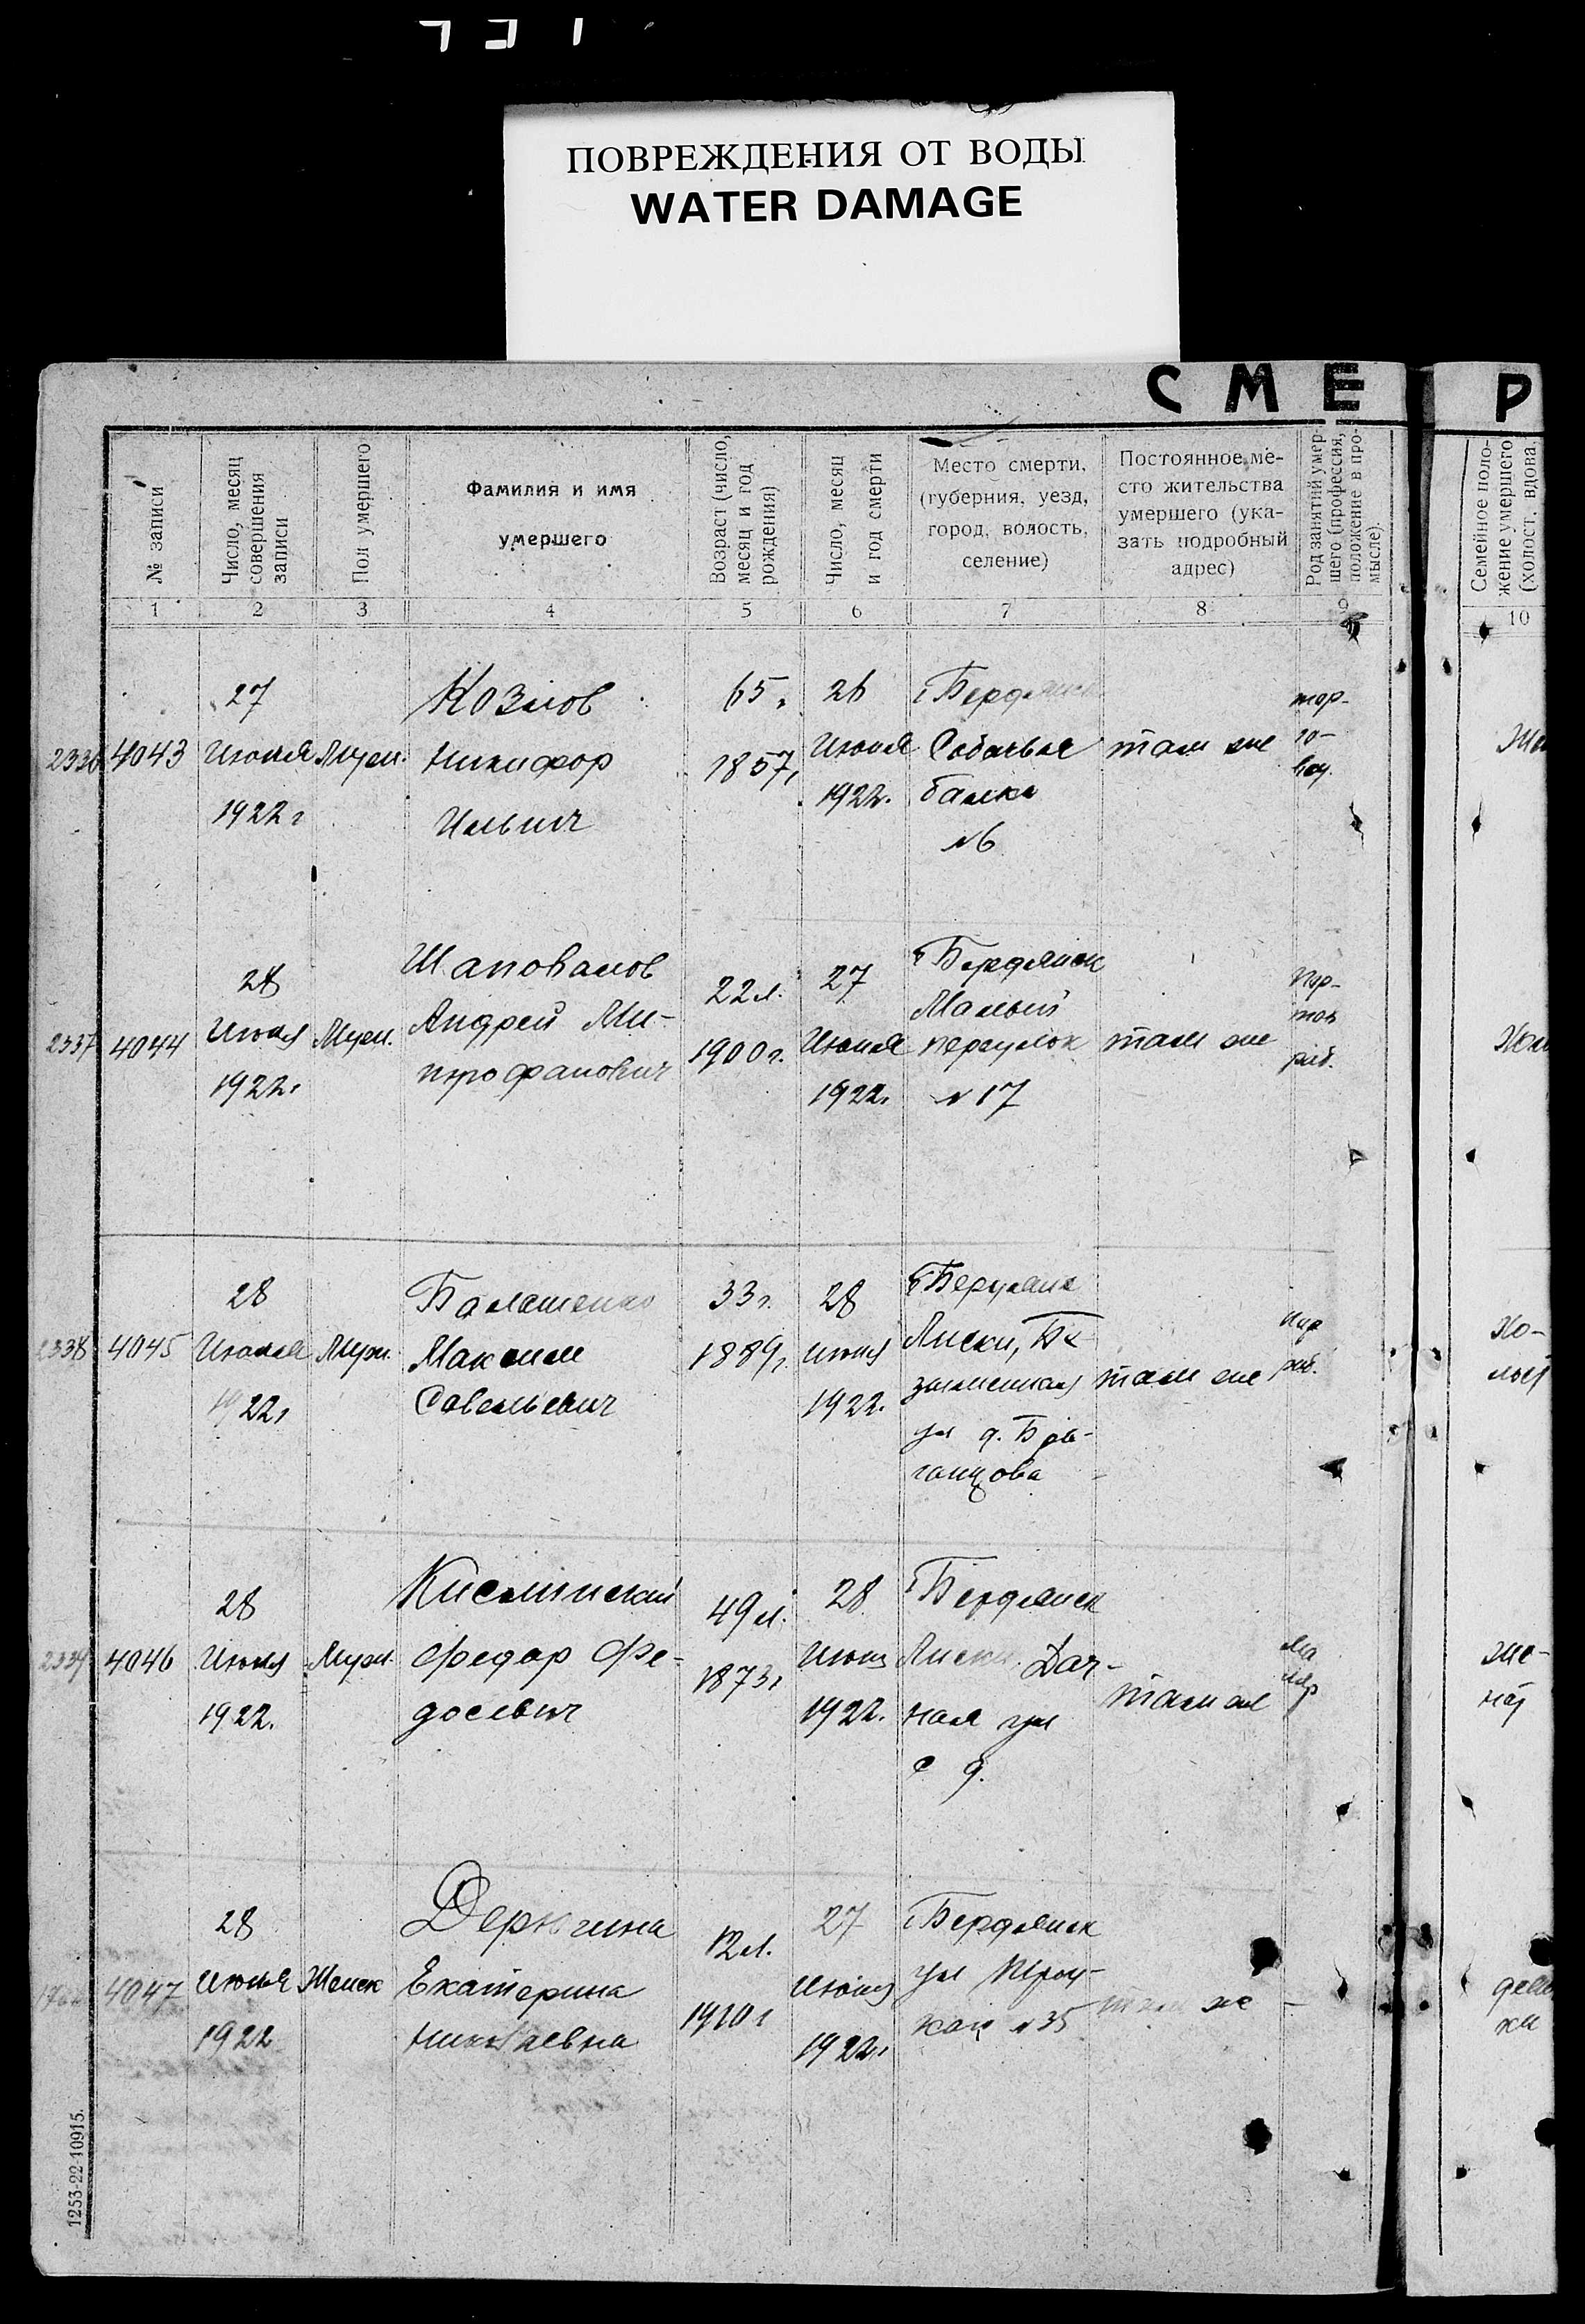 ПОВРЕЖДЕНИЯ ОТ ВОДЫ
WATER DAMAGE
СМЕР
№ записи
Число, месяц
совершения
записи
Пол умершего
Фамилия и имя
умершего
Возраст (число,
месяц и год
рождения)
Число, месяц
и год смерти
Место смерти,
(губерния, уезд,
город, волость,
селение)
Постоянное ме-
сто жительства
умершего (ука-
зать подробный
адрес)
Род занятий умер-
шего (профессия,
положение в про-
мысле).
Семейное поло-
жение умершего
(холост. вдова.
1 2 3 4 5 6 7 8 9 10
2336 4043
27
Июня
1922 г
Муж.
Козлов
Никифор
Ильич
65
1857
26
Июня
1922.
г Бердянск
Собачья
балка
№6
там же
тор-
го-
вец.
2337 4044
28
Июня
1922г
Муж.
Шаповалов
Андрей Ми-
трофанович
22 л.
1900 г.
27
Июня
1922г
г Бердянск
Малый
переулок
№17
там же
пор-
раб.
2338 4045
28
Июня
1922г
Муж.
Балашенко
Максим
Савельевич
33 г.
1889г
28
июня
1922.
г Бердянск
Лиски,
ул д.
там же
раб.
хо-
лост
4046
28
Июня
1922.
Муж.
Федор Фе-
досевич
49 л.
1873г
28
Июня
1922.
г Бердянск
Лиски. Дач-
ная ул
с д.
там же
ма
ляр
же-
нат
4047
28
Июня
1922
Женск
Дерюгина
Екатерина
Николаевна
12 л.
1910 г
27
Июня
1922г
г Бердянск
ул Троц-
кого №35
там же
-
1253-22-10915.